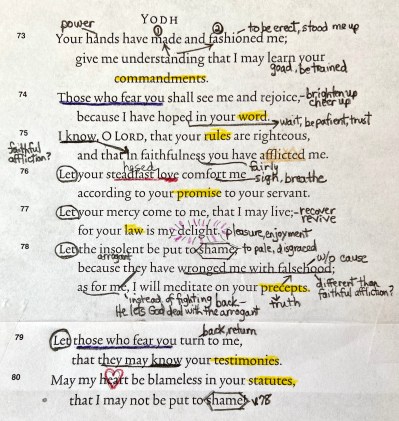 YODH
power ① ② to be erect, stood me up
73 Your hands have made and fashioned me;
give me understanding that I may learn your
goad, be trained
commandments.
74 Those who fear you shall see me and rejoice, - brighten up
cheer up
because I have hoped in your word.
wait, be patient, trust
75 I know, O LORD, that your rules are righteous,
faithful affliction?
and that in faithfulness you have afflicted me.
hesed fairly
76 Let your steadfast love comfort me sigh, breathe
according to your promise to your servant.
77 Let your mercy come to me, that I may live; - recover
revive
for your law is my delight. pleasure, enjoyment
78 Let the insolent be put to shame, to pale, disgraced
arrogant w/o cause
because they have wronged me with falsehood;
as for me, I will meditate on your precepts. different than
faithful affliction?
instead of fighting back - truth
He lets God deal with the arrogant
back, return
79 Let those who fear you turn to me,
that they may know your testimonies.
80 May my heart be blameless in your statutes,
that I may not be put to shame! v78